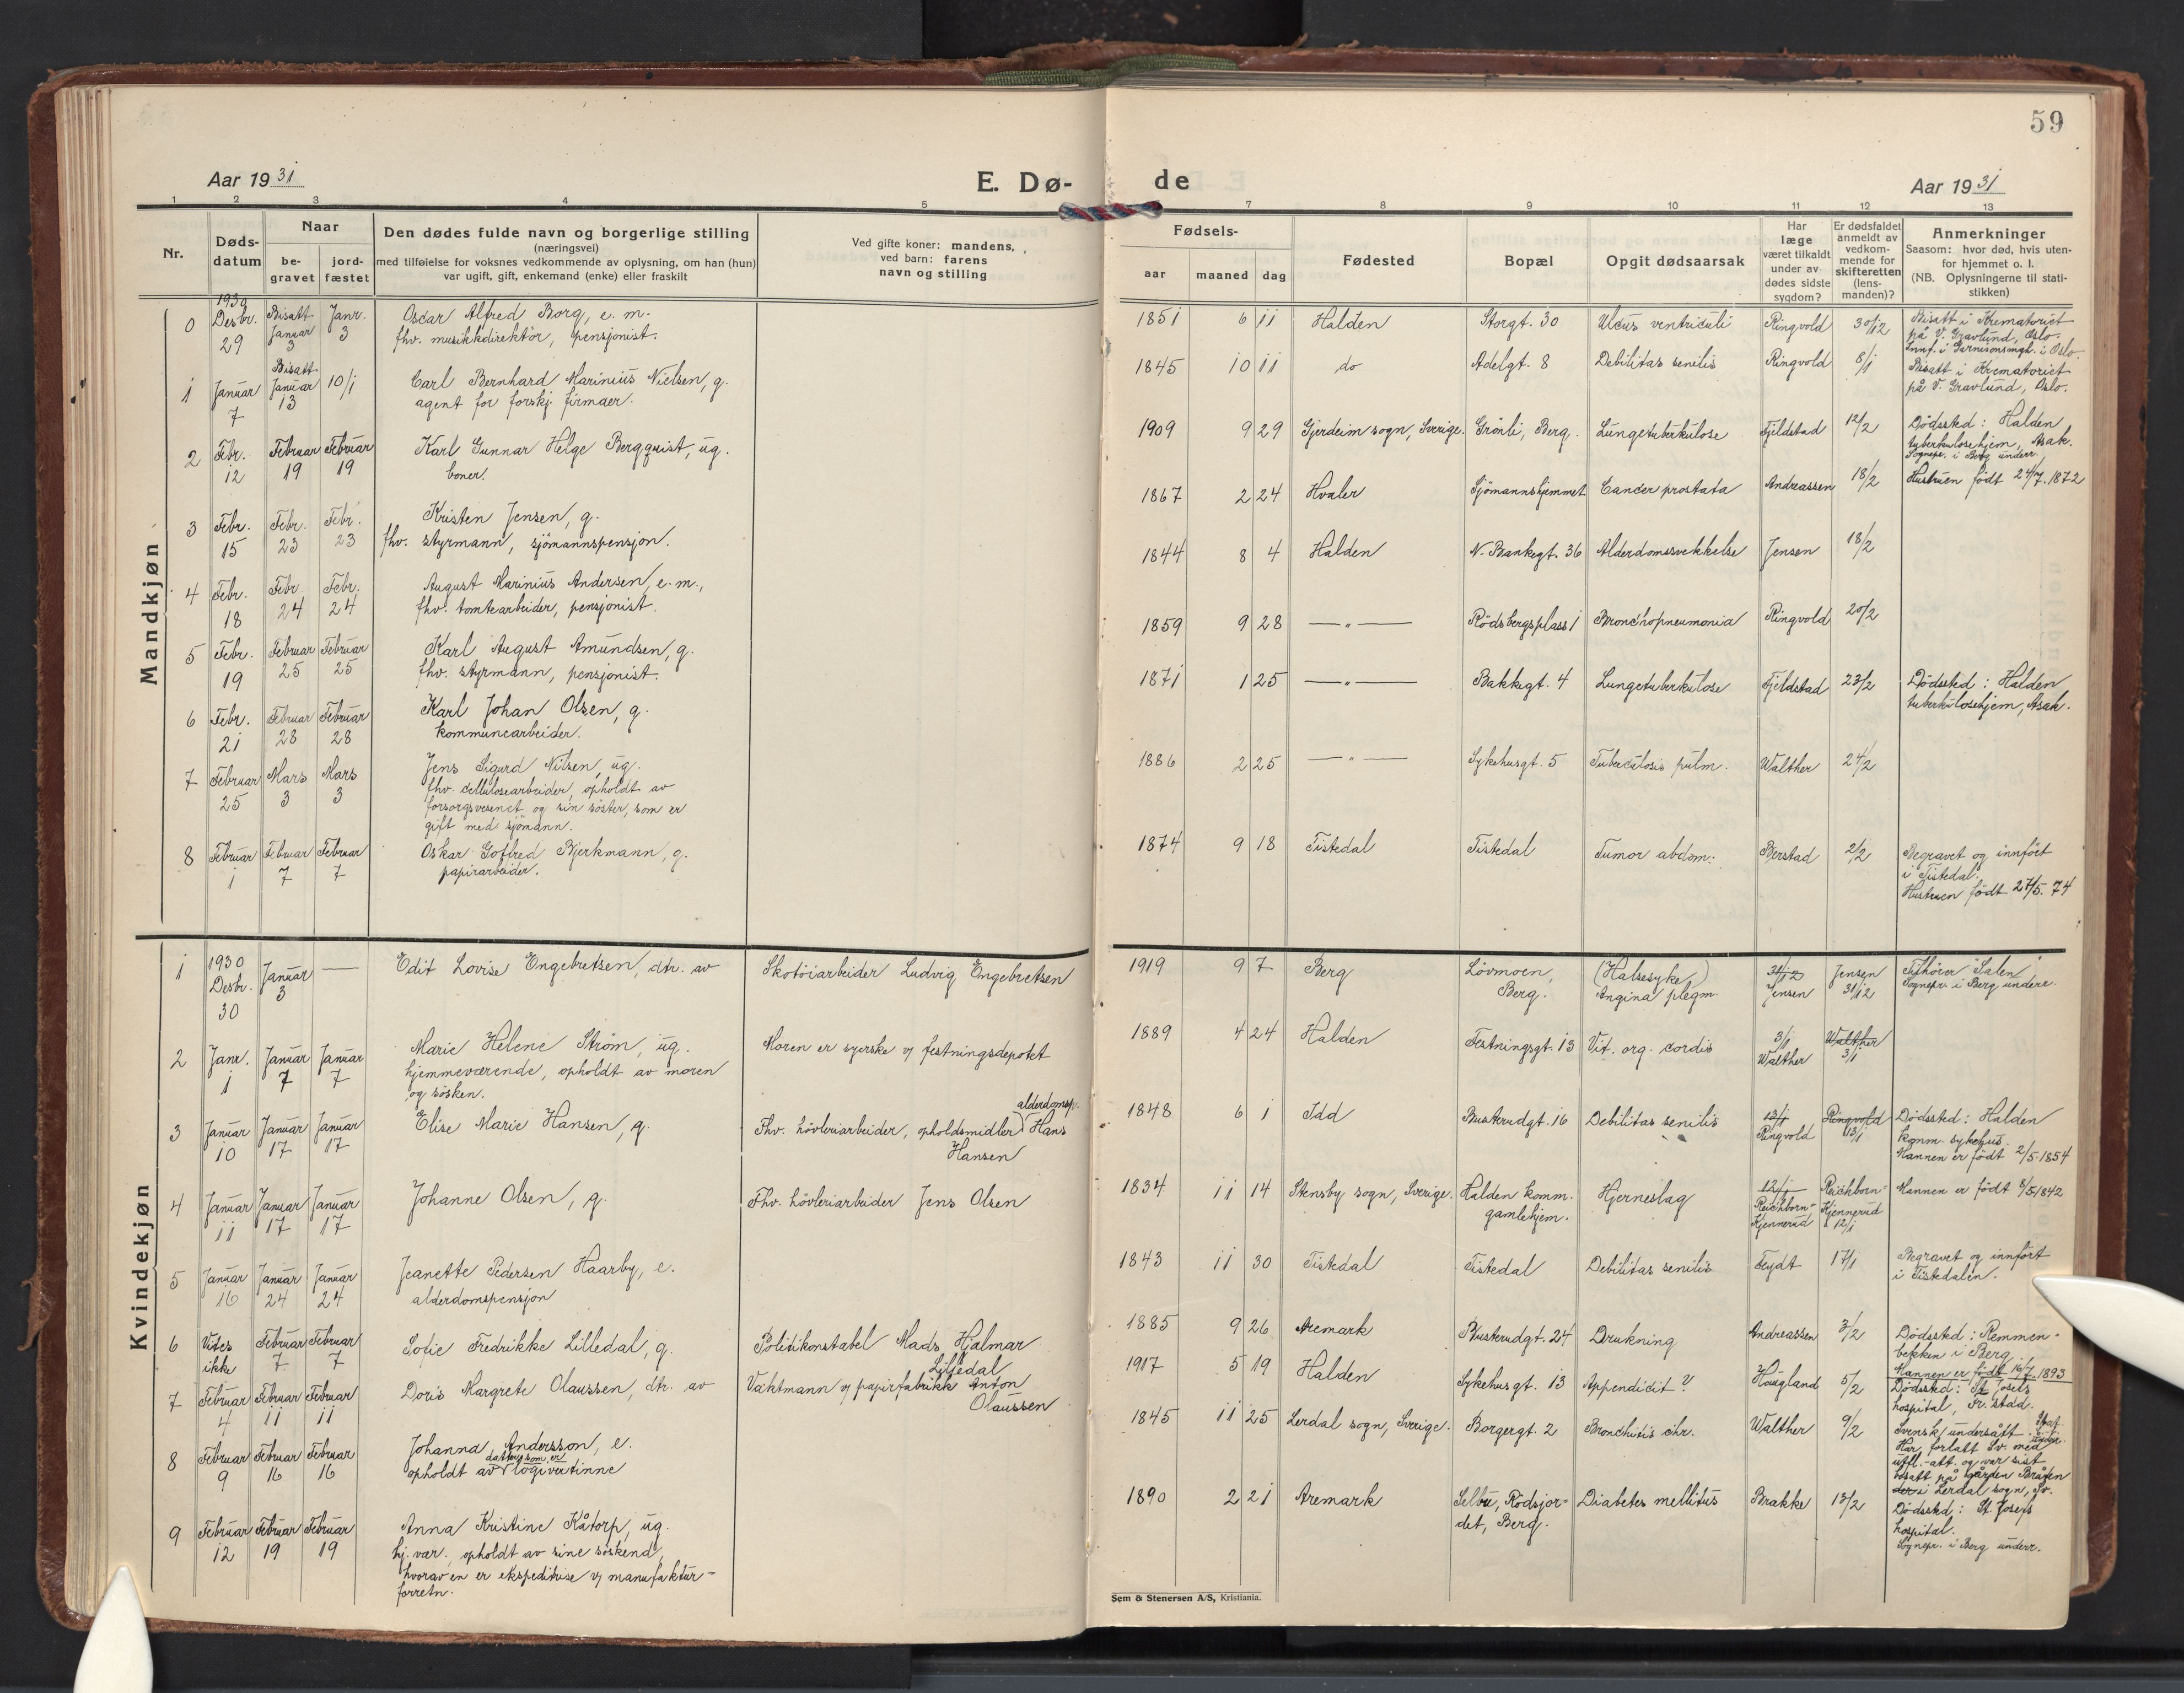 59
Aar 1931
E. Dø-
de
Aar 1931
1 2 3 4 5 7 8 9 10 11 12 13
Nr.
Døds-
datum
Naar
be-
gravet
jord-
fæstet
Den dødes fulde navn og borgerlige stilling
(næringsvei)
med tilføielse for voksnes vedkommende av oplysning, om han (hun)
var ugift, gift, enkemand (enke) eller fraskilt
Ved gifte koner: mandens,
ved barn: farens
navn og stilling
Fødsels-
aar maaned dag
Fødested
Bopæl
Opgit dødsaarsak
Har
læge
været tilkaldt
under av-
dødes sidste
sygdom?
Er dødsfaldet
anmeldt av
vedkom-
mende for
skifteretten
(lens-
manden)?
Anmerkninger
Saasom: hvor død, hvis uten-
for hjemmet o. l.
(NB. Oplysningerne til stati-
stikken)
Mandkjøn
0 1930 Desbr. 29 Bisatt Januar 3 Janr. 3
Oscar Alfred Borg, e. m.
fhv. musikkdirektör, pensjonist.
1851 6 11 Halden Storgt. 30 Ulcus ventriculi Ringvold 30/12
Bisatt i Krematoriet
på V. Gravlund, Oslo.
Innf. i Garnisonsmgh. i Oslo.
1 Januar 7 Bisatt Januar 13 10/1
Carl Bernhard Marinius Nielsen, g.
agent for forskj. firmaer.
1845 10 11 do Adelgt. 8 Debilitas senilis Ringvold 8/1
Bisatt i Krematoriet
på V. Gravlund, Oslo.
2 Febr. 12 Februar 19 Februar 19
Karl Gunnar Helge Bergquist, ug.
boner.
1909 9 29 Gjerdeim sogn, Sverige. Grönli, Berg. Lungetuberkulose Fjeldstad 12/2
Dödssted: Halden
tuberkulosehjem, Asak.
Sognepr. i Berg underr.
3 Febr. 15 Febr. 23 Febr. 23
Kristen Jensen, g.
fhv. styrmann, sjömannspensjon.
1867 2 24 Hvaler Sjömannshjemmet Cancer prostata Andreassen 18/2
Hustruen födt 24/7. 1872
4 Febr. 18 Febr. 24 Febr. 24
August Marinius Andersen, e. m.,
fhv. tomtearbeider, pensjonist.
1844 8 4 Halden N. Bankegt. 36 Alderdomssvekkelse Jensen 18/2
5 Febr. 19 Februar 25 Februar 25
Karl August Amundsen, g.
fhv. styrmann, pensjonist.
1859 9 28 — " — Rödsbergsplass 1 Bronchopneumonia Ringvold 20/2
6 Febr. 21 Februar 28 Februar 28
Karl Johan Olsen, g.
kommunearbeider.
1871 1 25 — " — Bakkegt. 4 Lungetuberkulose Fjeldstad 23/2
Dödssted: Halden
tuberkulosehjem, Asak.
7 Februar 25 Mars 3 Mars 3
Jens Sigurd Nilsen, ug.
fhv. cellulosearbeider, opholdt av
forsorgsvesenet og sin söster, som er
gift med sjömann.
1886 2 25 — " — Sykehusgt. 5 Tuberculosis pulm. Walther 24/2
8 Februar 1 Februar 7 Februar 7
Oskar Gotfred Bjerkmann, g.
papirarbeider.
1874 9 18 Tistedal Tistedal Tumor abdom: Berstad 2/2
Begravet og innfört
i Tistedal.
Hustruen födt 27/5. 74
Kvindekjøn
1 1930 Desbr. 30 Januar 3 —
Edit Lovise Engebretsen, dtr. av
Skotöiarbeider Ludvig Engebretsen
1919 9 7 Berg Lövmoen, Berg. (Halsesyke) Angina plegm. 31/12 Jensen Jensen 31/12
Tilhörer "Salen"
Sognepr. i Berg underr.
2 Janr. 1 Januar 7 Januar 7
Marie Helene Ström, ug.
hjemmeværende, opholdt av moren
og sösken.
Moren er syerske v/ festningsdepotet
1889 4 24 Halden Festningsgt. 13 Vit. org. cordis 3/1 Walther Walther 3/1
3 Januar 10 Januar 17 Januar 17
Elise Marie Hansen, g.
Fhv. hövleriarbeider, opholdsmidler alderdomsp. Hans
Hansen
1848 6 1 Idd Buskrudgt. 16 Debilitas senilis 13/1 Ringvold Ringvold 13/1
Dödssted: Halden
komm. sykehus.
Mannen er födt 2/5-1854
4 Januar 11 Januar 17 Januar 17
Johanne Olsen, g.
Fhv. hövleriarbeider Jens Olsen
1834 11 14 Stensby sogn, Sverige. Halden komm. gamlehjem. Hjerneslag 12/1 Reichborn-Kjennerud Reichborn-Kjennerud 12/1
Mannen er födt 8/5-1842
5 Januar 16 Januar 24 Januar 24
Jeanette Pedersen Haarby, e.
alderdomspensjon
1843 11 30 Tistedal Tistedal Debilitas senilis Feydt 17/1
Begravet og innfört
i Tistedalen.
6 Vites ikke Februar 7 Februar 7
Sofie Fredrikke Lilledal, g.
Politikonstabel Mads Hjalmar
Lilledal
1885 9 26 Aremark Buskrudgt. 24 Drukning Andreassen 3/2
Dödssted: Remmen-
bekken i Berg
Mannen er födt 16/7 1893
7 Februar 4 Februar 11 Februar 11
Doris Margrete Olaussen, dtr. av
Vaktmann v/ papirfabrikk Anton
Olaussen
1917 5 19 Halden Sykehusgt. 13 Appendicit? Haugland 5/2
Dödssted: St. Josefs
hospital, Fr.stad.
8 Februar 9 Februar 16 Februar 16
Johanna Andersson, e.
opholdt av datter, som er logivertinne
1845 11 25 Lerdal sogn, Sverige. Borgergt. 2 Bronchitis chr. Walther 9/2
Svensk undersått.
Har forlatt Sv. med
utfl.-att. og var sist
bosatt på gården Bråten
i Lerdal sogn, Sv.
9 Februar 12 Februar 19 Februar 19
Anna Kristine Kåtorp, ug.
hj. vær., opholdt av sine söskend,
hvorav en er ekspeditrise v/ manufaktur-
forretn.
1890 2 21 Aremark Selbu, Rödsjor-
det, Berg. Diabetes mellitus Brakke 13/2
Dödssted: St. Josefs
hospital.
Sognepr. i Berg underr.
Sem & Stenersen A/S, Kristiania.